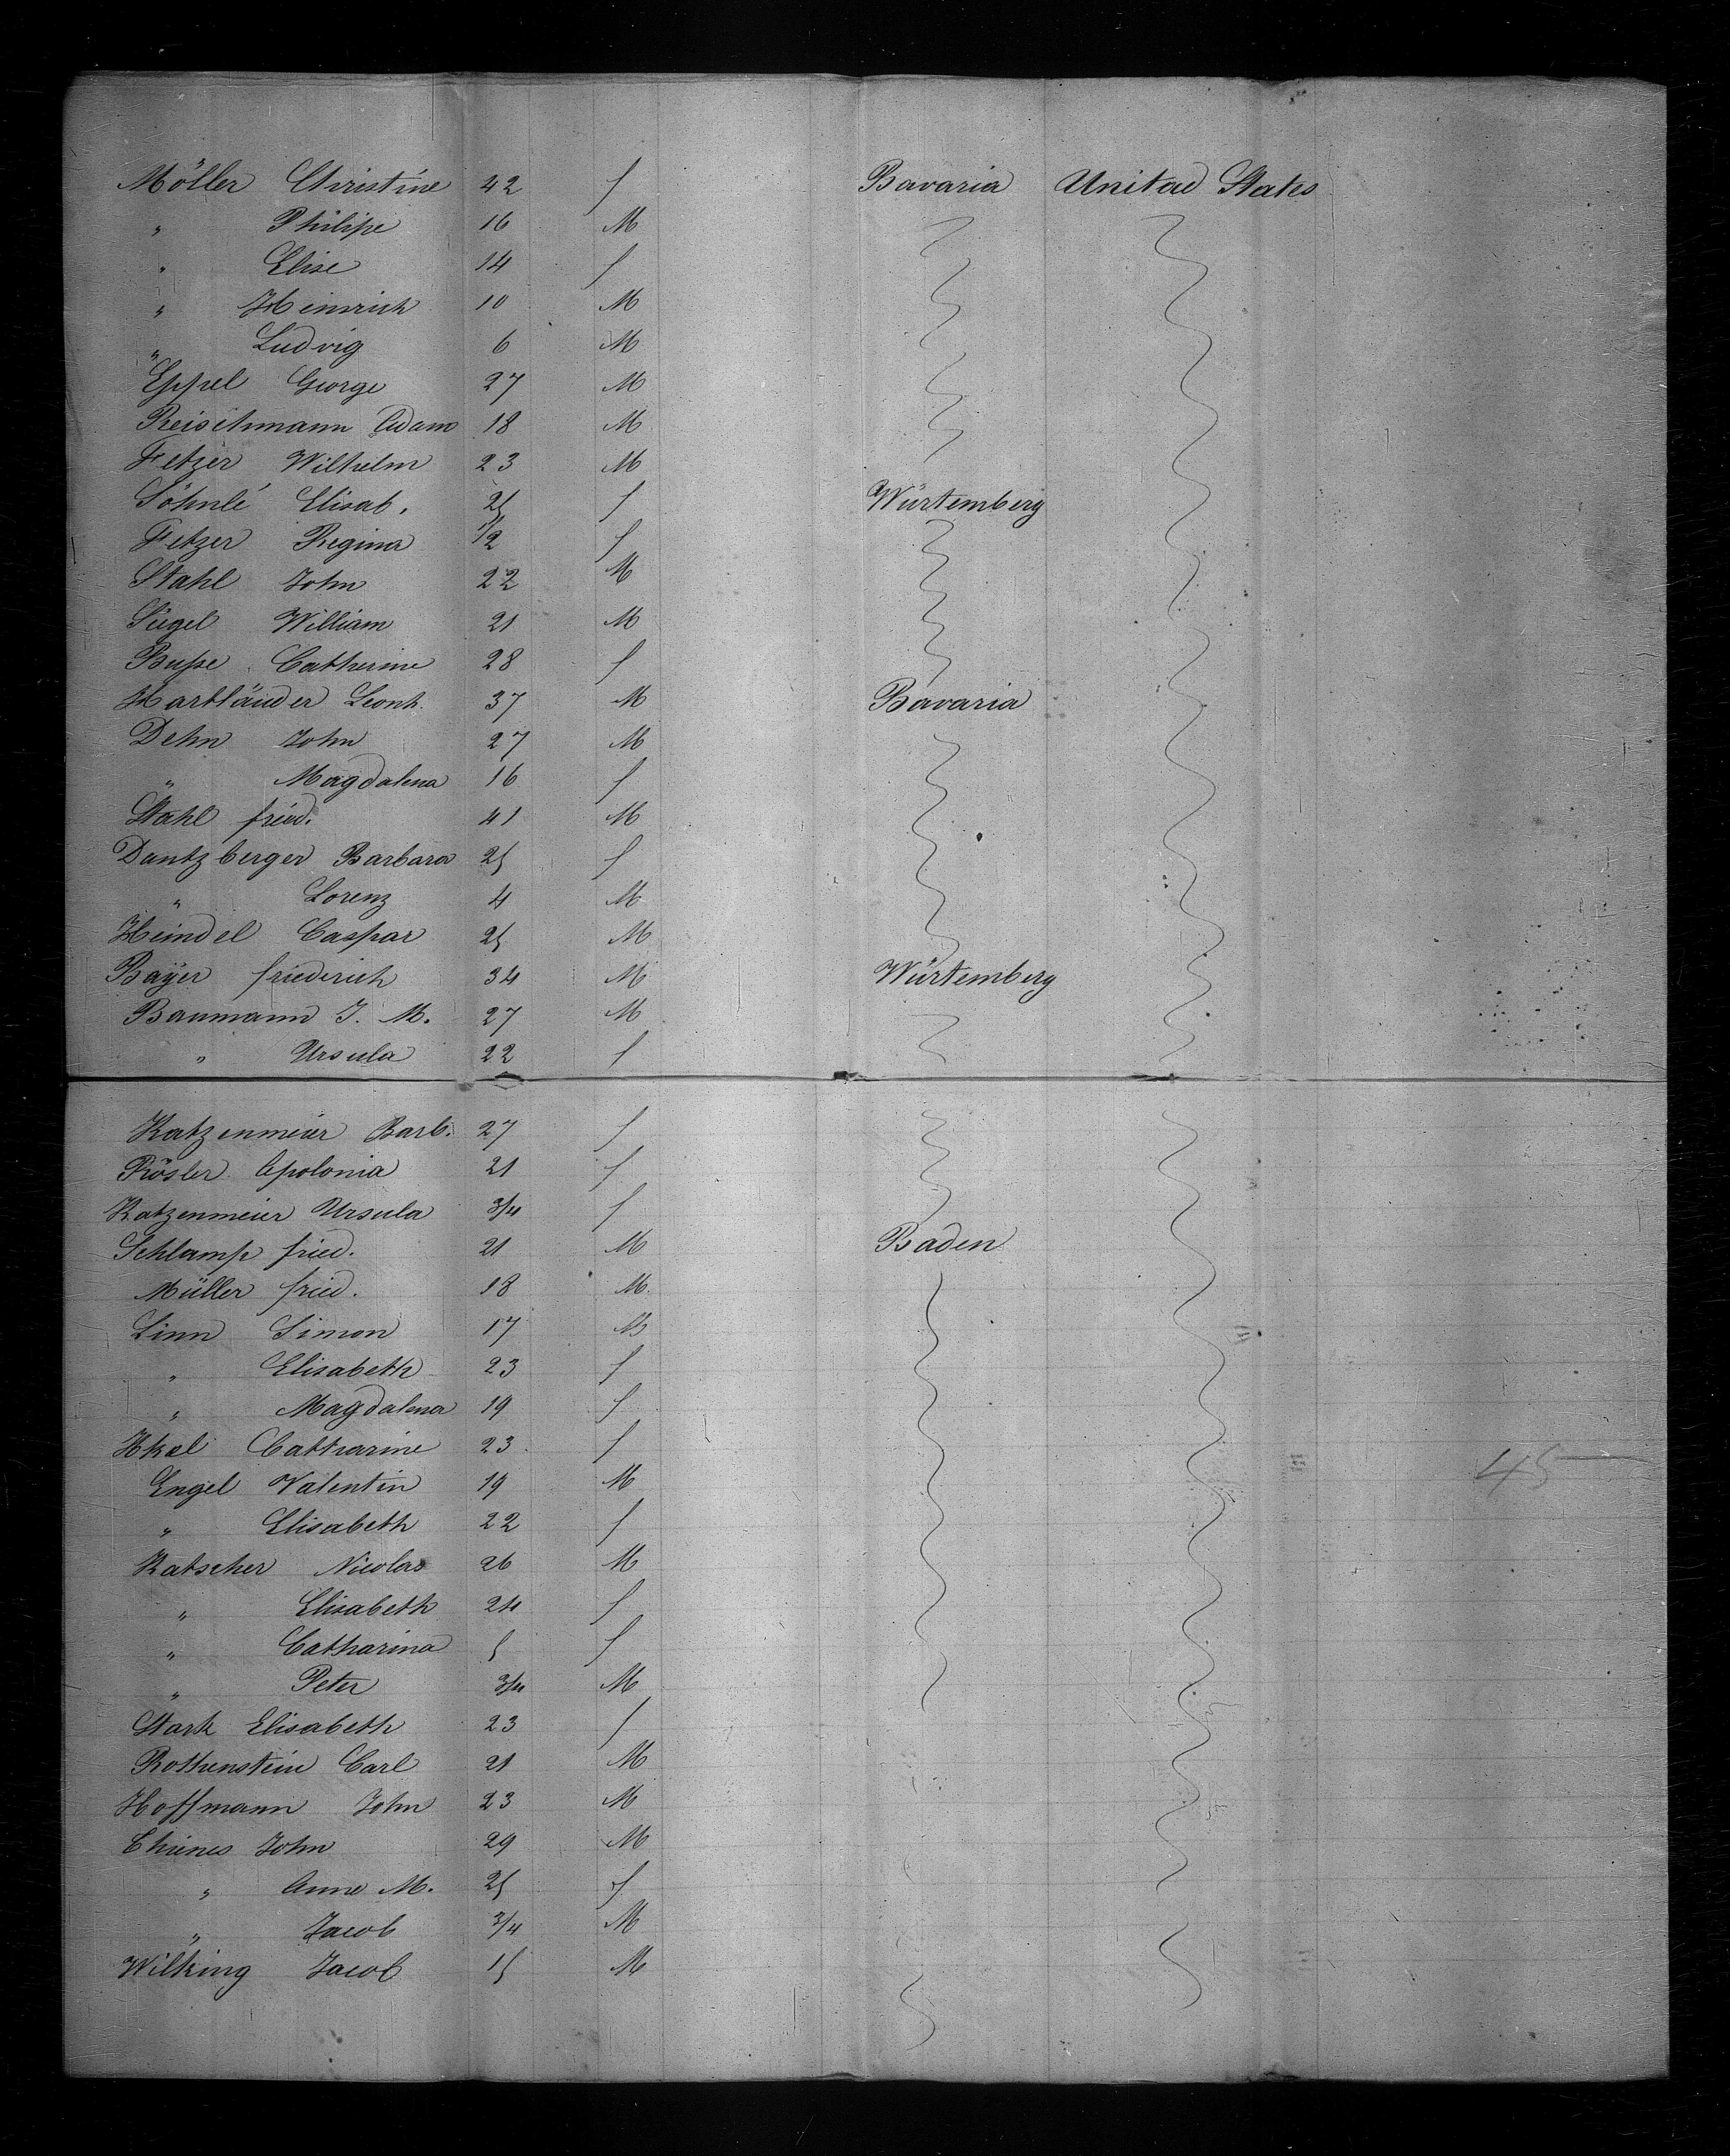 Möller Christine 42 f Bavaria United States
" Philipe 16 M
" Elise 14 f
" Heinrich 10 M
" Ludvig 6 M
Eppel George 27 M
Reischmann Adam 18 M
Fetzer Wilhelm 23 M
Söhnlé Elisab. 25 f Würtemberg
Fetzer Regina 1/2 f
Stahl John 22 M
Siegel William 21 M
Busse Catherine 28 f
Hartländer Leonh. 37 M Bavaria
Dehn John 27 M
" Magdalena 16 f
Stahl fried. 41 M
Dantzberger Barbara 25 f
" Lorenz 4 M
Heindel Caspar 25 M
Bayer friederich 34 M Würtemberg
Baumann J. M. 27 M
" Ursula 22 f
Katzenmeier Barb. 27 f
Rösler Apolonia 21 f
Katzenmeier Ursula 3/4 f
Schlamp fried. 21 M Baden
Müller fried. 18 M.
Linn Simon 17 M
" Elisabeth 23 f
" Magdalena 19 f
Catharine 23 f
Engel Valentin 19 M
" Elisabeth 22 f
Katscher Nicolas 26 M
" Elisabeth 24 f
" Catharina 5 f
" Peter 3/4 M
Stark Elisabeth 23 f
Rothenstein Carl 21 M
Hoffmann John 23 M
Thienes John 29 M
" Anna M. 25 f
" Jacob 3/4 M
Wilking Jacob 15 M
45